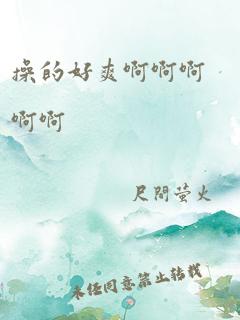 操的好爽啊啊啊
啊啊
尺問萤火
未经同意禁止转载